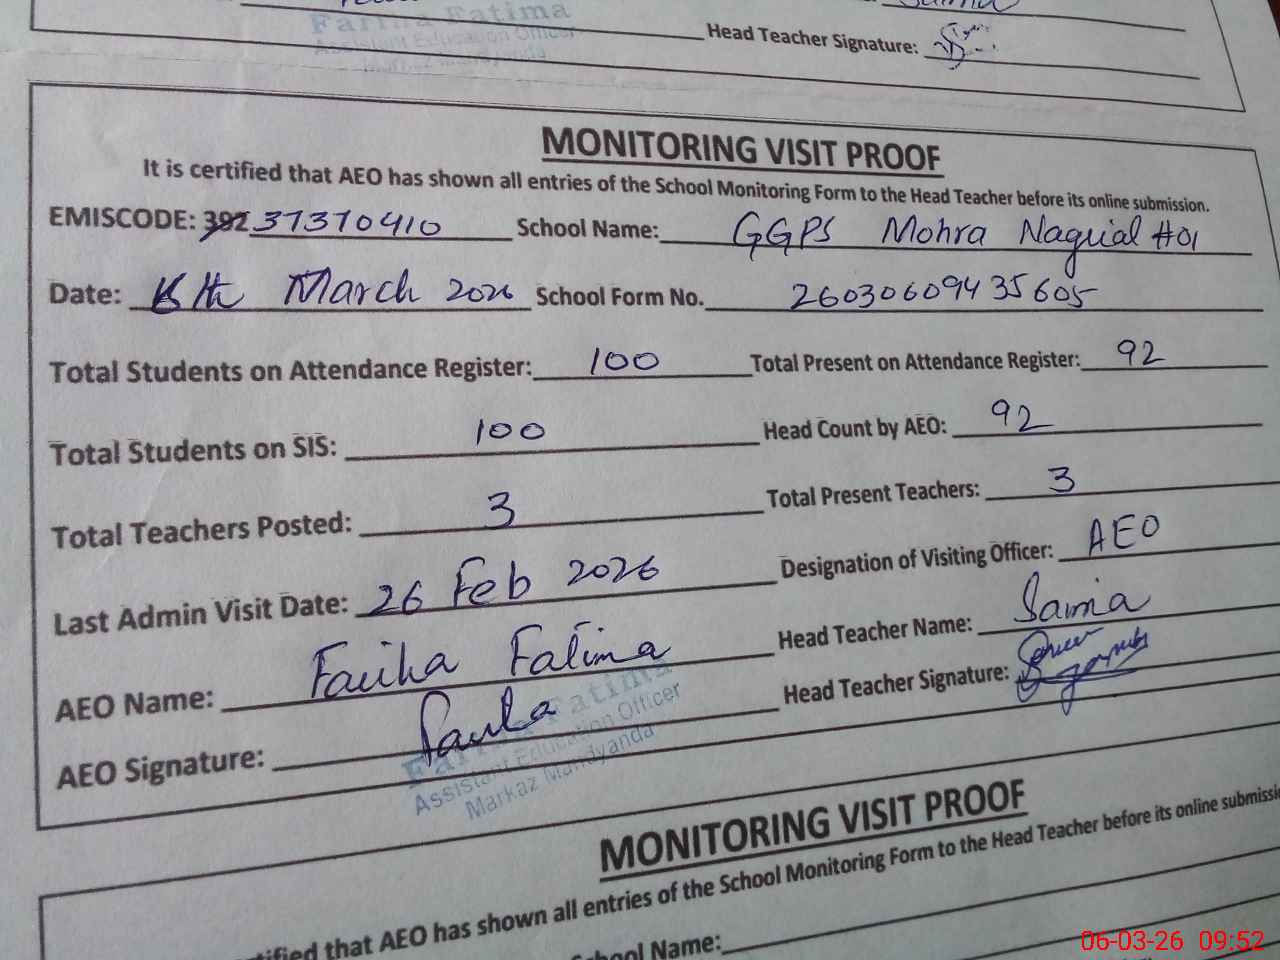 Farina Fatima
Assistant Education Officer
Head Teacher Signature:
MONITORING VISIT PROOF
It is certified that AEO has shown all entries of the School Monitoring Form to the Head Teacher before its online submission.
EMISCODE: 392 37370410 School Name: GGPS Mohra Nagyial #01
Date: 6th March 2026 School Form No. 26030609435605
Total Students on Attendance Register: 100 Total Present on Attendance Register: 92
Total Students on SIS: 100 Head Count by AEO: 92
Total Teachers Posted: 3 Total Present Teachers: 3
Last Admin Visit Date: 26 Feb 2026 Designation of Visiting Officer: AEO
AEO Name: Fatima Head Teacher Name: Saima
AEO Signature: Head Teacher Signature:
Fatima
Assistant Education Officer
Markaz Mandyanda
MONITORING VISIT PROOF
tified that AEO has shown all entries of the School Monitoring Form to the Head Teacher before its online submissi
School Name:
06-03-26 09:52